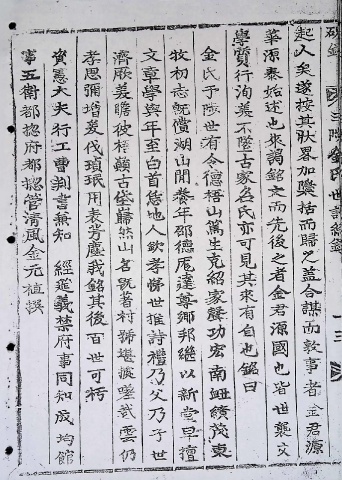 起人矣遂按其狀畧加隱括而歸之蓋合謀而敦事者金君源
華源泰始述也來謁銘文而先後之者金君源國也皆世襲文
學質行洵美不墜古家名氏亦可見其來有自也銘曰
金氏于陵世有令德梧山篤生克紹家聲功宏南
牧初志旣償湖山閒養年卲德尼達尊鄉邦繼以新堂早擅
文章學與年至白首
地人欽孝悌世推詩禮乃父乃子世
濟厥美瞻彼梧巔古岱歸然山名旣著村號
孝思彌增爰伐瑱珉用表芳塵我銘其後百世可朽
資憲大夫行工曹判書兼知 經筵義禁府事同知成均館
事五衛都摠府都摠管清風金元植撰